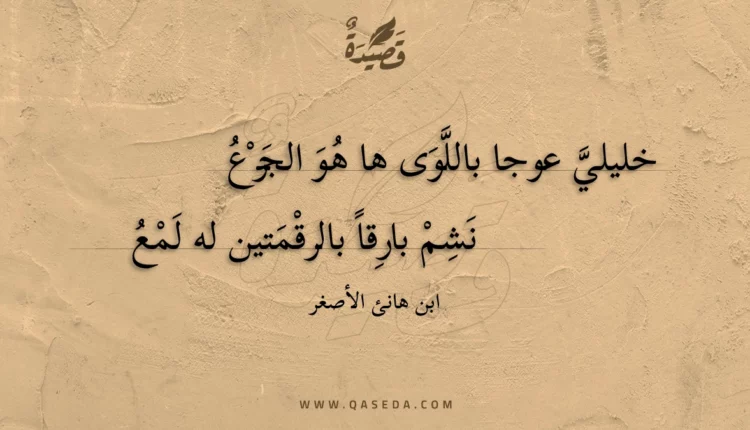 قَصِيْدَةٌ
خليليَّ عوجا باللَّوَى ها هُوَ الجَوْعُ
نَشِمْ بارِقاً بالرقْمَتين له لَمْعُ
ابن هانئ الأصغر
WWW.QASEDA.COM